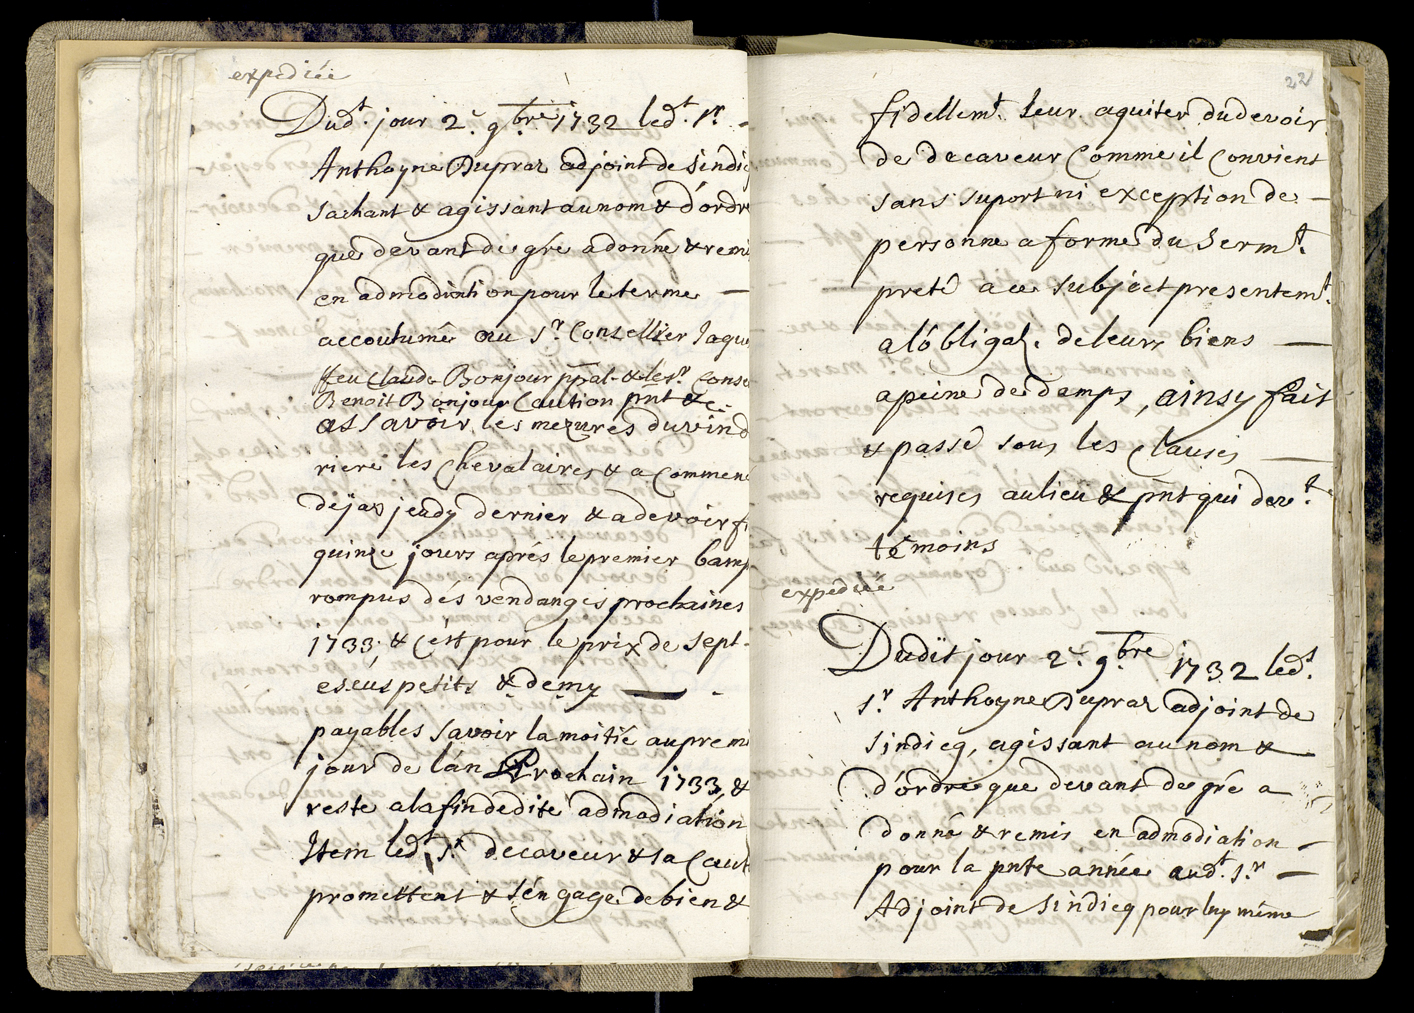 expediée
Dud.t jour 2.e 9bre 1732 led.t S.r
Anthoyne Dupraz adjoint de Sindiq
sachant & agissant au nom & d'ordre
que devant de gré a donné & remi
en admodiation pour le terme
accoutumé au S.r Consellier Jaque
ffeu Claude Bonjour ppal. & le S.r Conse
Benoit Bonjour Caution pñt &c.
assavoir les mezures du vin d
riere les Chevalaires & a commenc
déjaz jeudy dernier & a devoir fi
quinze jours aprés le premier bamp
rompus dés vendanges prochaines
1733; & c'est pour le prix de sept
escus petits & demy
payables savoir la moitié au premi
jour de l'an Prochain 1733, &
reste a la fin de dite admodiation
Item led.t S.r decaveur & sa Caut
promettent & s'éngage de bien &
22
fidellem.t leur aquiter du devoir
de decaveur Comme il Convient
sans suport ni exception de
personne a forme du Serm.t
preté a ce subject presentem.t
a l'óbligaõ. de leurs biens
a peine de damps, ainsy fait
& passé sous les Clauses
requises au lieu & pñt qui dev.t
témoins
expediée
Dudit jour 2.e 9bre 1732 led.t
S.r Anthoyne Dupraz adjoint de
Sindicq, agissant au nom &
d'órdre que devant de gré a
donné & remis en admodiation
pour la pnte année aud.t S.r
Adjoint de Sindicq pour luy même